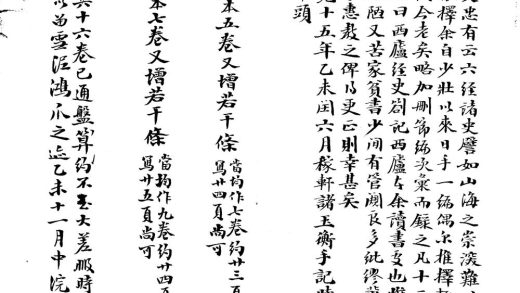 忠有云六經諸史譬如山海之崇深難
擇余自少壯以來日手一編偶尔推擇
今老矣略加刪節編次彙而錄之凡十
曰西廬經史劄記西廬余讀書也
陋又苦家貧書少間有管闚良多紕繆
惠教之俾更正則幸甚矣
光十五年乙未閏六月稼軒諸玉衡手記時
頭
本五卷又增若干條
當均作七卷約廿三頁
寫廿四頁尚可
本七卷又增若干條
當均作九卷約廿四
寫廿五頁尚可
共十六卷已通盤算約不甚大差暇時
以留雪泥鴻爪之迹乙未十一月中浣